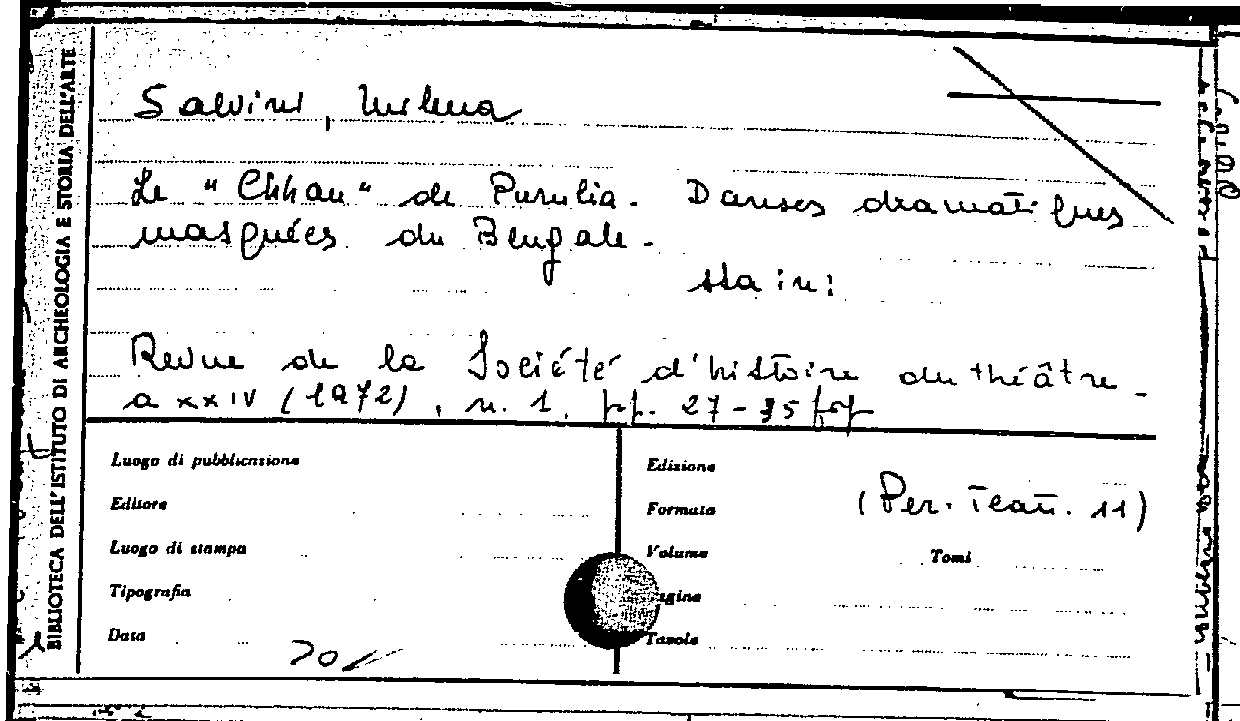 BIBLIOTECA DELL'ISTITUTO DI ARCHEOLOGIA E STORIA DELL'ARTE
Salvini, Milena
Le "Chhau" de Purulia. Danses dramatiques
masquées du Bengale.
sta in:
Revue de la Société d'histoire du théâtre.
a XXIV (1972), n. 1, pp. 27-35
Luogo di pubblicazione
Editore
Luogo di stampa
Tipografia
Data
Edizione
Formato
(Per. Teat. 11)
Volume
Tomi
Pagine
Tavole